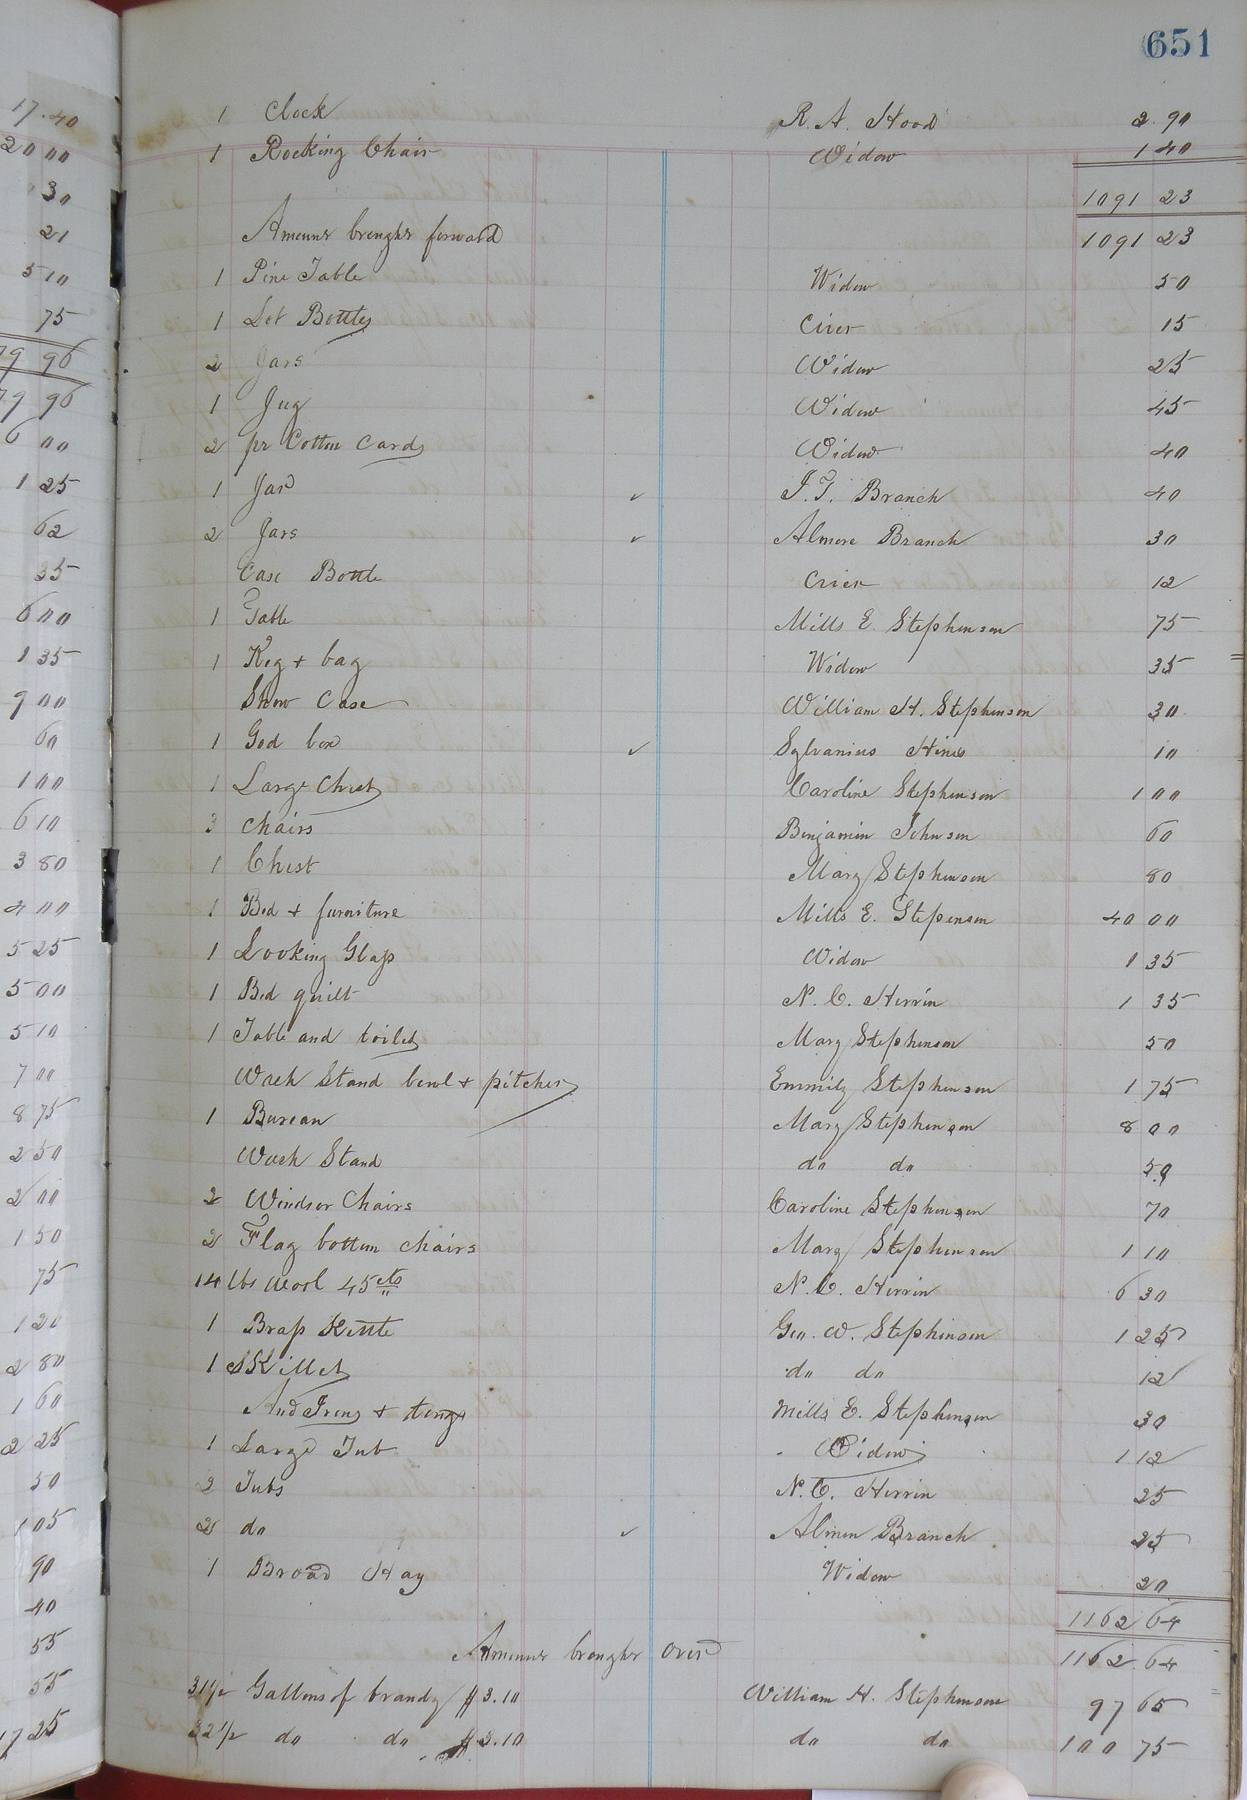 651
17.40
20 00
30
21
5 10
75
79 96
79 96
6 00
1 25
62
35
6 00
1 35
9 00
60
1 00
6 10
3 80
4 00
5 25
5 00
5 10
7 00
8 75
2 50
2 00
1 50
75
1 20
2 80
1 60
2 25
50
1 05
90
40
55
55
17 25
1 Clock R. A. Hood 2 90
1 Rocking Chair Widow 1 40
1091 23
Amount brought forward 1091 23
1 Pine Table Widow 50
1 Lot Bottles Crier 15
2 Jars Widow 25
1 Jug Widow 45
2 pr Cotton Cards Widow 40
1 Jar ✓ J. T. Branch 40
2 Jars ✓ Almore Branch 30
Case Bottle Crier 12
1 Table Mills E. Stephenson 75
1 Keg + bag Widow 35
Show Case William H. Stephenson 30
1 God box ✓ Sylvanius Hines 10
1 Large Chest Caroline Stephenson 1 00
3 Chairs Benjamin Johnson 60
1 Chest Mary Stephenson 80
1 Bed + furniture Mills E. Stepenson 40 00
1 Looking Glass Widow 1 35
1 Bed quilt N. C. Herrin 1 35
1 Table and toilet Mary Stephenson 50
Wash Stand bowl + pitcher Emmily Stephenson 1 75
1 Bureau Mary Stephenson 8 00
Wash Stand do do 50
2 Windsor Chairs Caroline Stephenson 70
2 Flag bottom chairs Mary Stephenson 1 10
14 lbs wool 45 cts N. C. Herrin 6 30
1 Brass Kettle Geo. W. Stephenson 1 25
1 SKillet do do 12
And Irons + tongs Mills E. Stephenson 30
1 Large Tub Widow 1 12
2 Tubs N. C. Herrin 25
2 do ✓ Almon Branch 25
1 Broad Hay Widow 20
1162 64
Amount brought over 1162 64
31 1/2 Gallons of brandy $3.10 William H. Stephenson 97 65
32 1/2 do do $3.10 do do 100 75